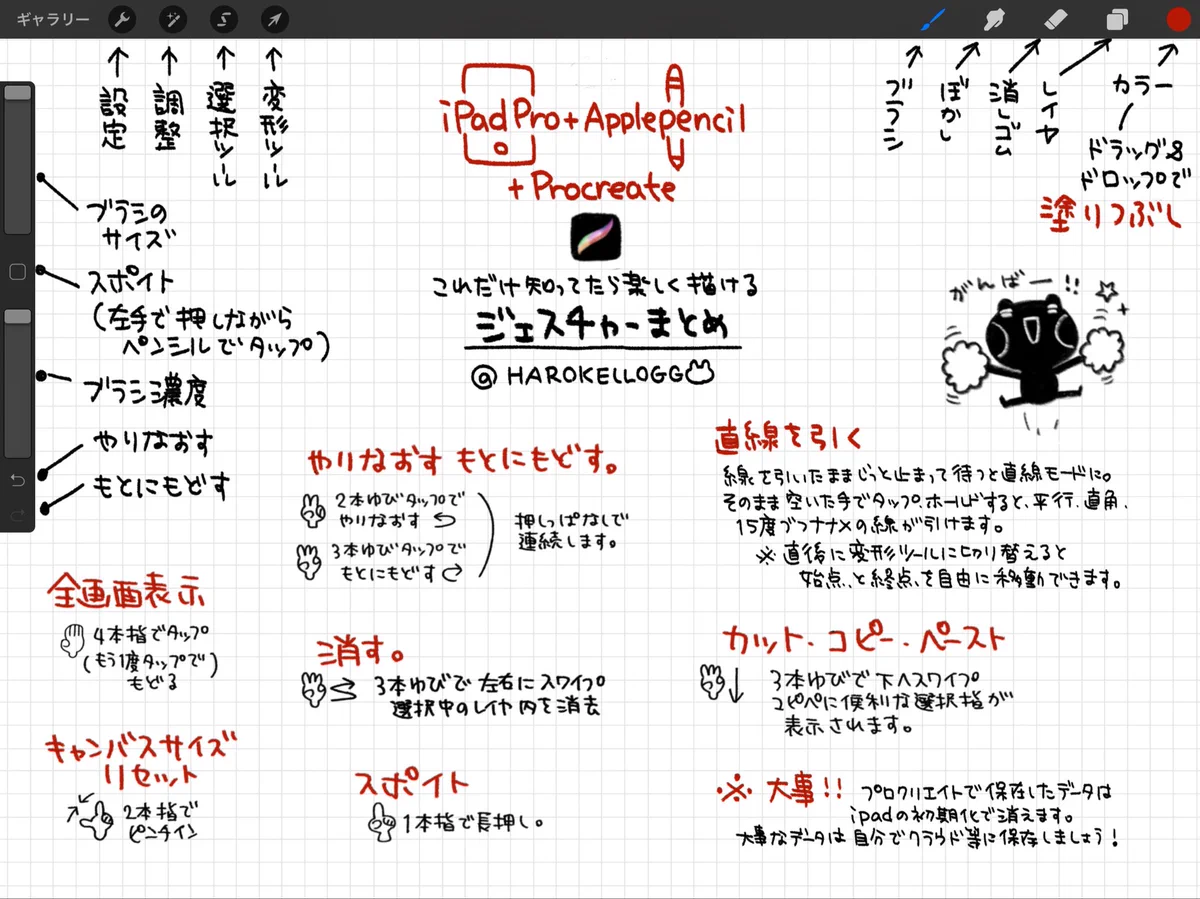 ギャラリー
設定
調整
選択ツール
変形ツール
ブラシ
ぼかし
消しゴム
レイヤ
カラー
ドラッグ&
ドロップで
塗りつぶし
iPad Pro+Applepencil
+Procreate
これだけ知ってたら楽しく描ける
ジェスチャーまとめ
@HAROKELLOGG
ブラシの
サイズ
スポイト
(左手で押しながら
ペンシルでタップ)
ブラシ濃度
やりなおす
もとにもどす
がんばー!!
やりなおす もとにもどす。
2本ゆびタップで
やりなおす
3本ゆびタップで
もとにもどす
押しっぱなしで
連続します。
直線を引く
線を引いたままじっと止まって待つと直線モードに。
そのまま空いた手でタップ、ホールドすると、平行、直角、
15度ブつナナメの線が引けます。
※直後に変形ツールに切り替えると
始点、と終点、を自由に移動できます。
全画面表示
4本指でタップ
(もう1度タップで)
もどる
消す。
3本ゆびで左右にスワイプ
選択中のレイヤ内を消去
カット・コピー・ペースト
3本ゆびで下へスワイプ
コピペに便利な選択指が
表示されます。
キャンバスサイズ
リセット
2本指で
ピンチイン
スポイト
1本指で長押し。
※大事!! プロクリエイトで保存したデータは
ipadの初期化で消えます。
大事なデータは自分でクラウド等に保存しましょう!